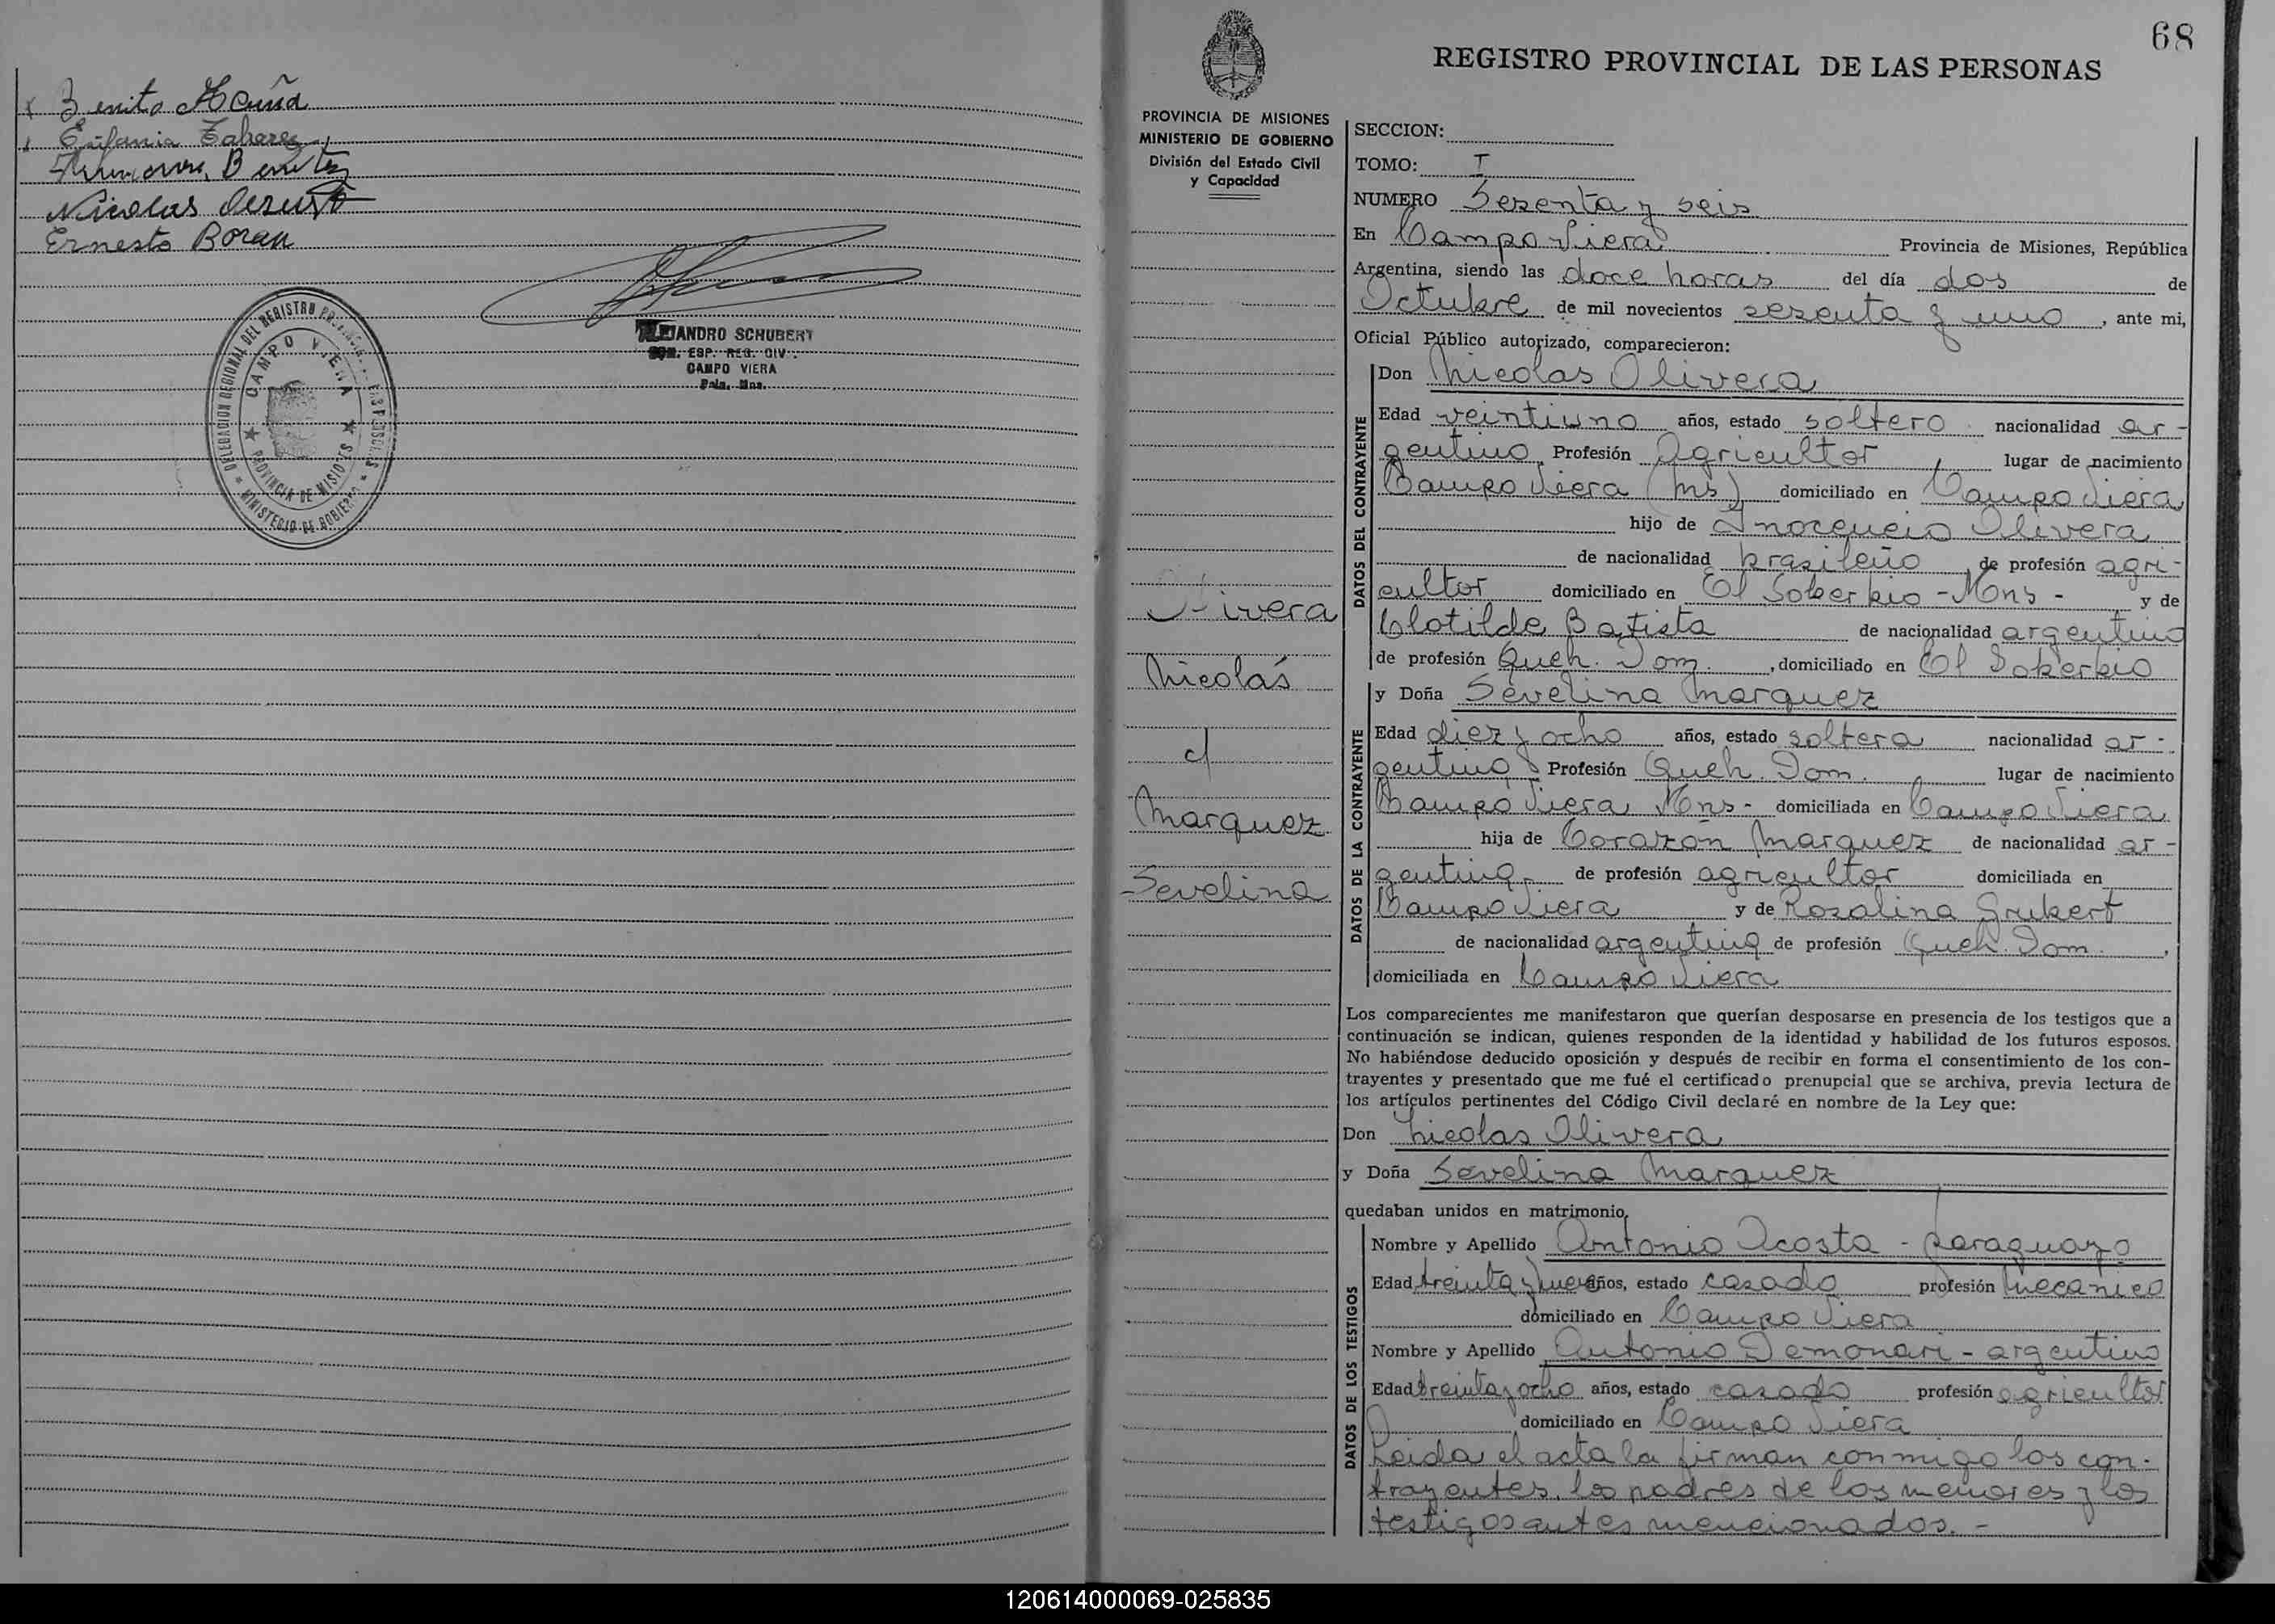 Benito Acuña
Eufania Tabarez
Benitez
Nicolas
Ernesto Boran
ALEJANDRO SCHUBERT
ESP. REG. CIV.
CAMPO VIERA
Pcia. Mns.
DELEGACION REGIONAL DEL REGISTRO PROVINCIAL
MINISTERIO DE GOBIERNO
CAMPO VIERA
PROVINCIA DE MISIONES
68
REGISTRO PROVINCIAL DE LAS PERSONAS
PROVINCIA DE MISIONES
MINISTERIO DE GOBIERNO
División del Estado Civil
y Capacidad
Olivera
Nicolás
c/
Marquez
Sevelina
SECCION:
TOMO: I
NUMERO Sesenta y seis
En Campo Viera Provincia de Misiones, República
Argentina, siendo las doce horas del día dos de
Octubre de mil novecientos sesenta y uno, ante mi,
Oficial Público autorizado, comparecieron:
DATOS DEL CONTRAYENTE
Don Nicolas Olivera
Edad veintiuno años, estado soltero nacionalidad ar-
gentino Profesión Agricultor, lugar de nacimiento
Campo Viera (Ms) domiciliado en Campo Viera
hijo de Inocencio Olivera
de nacionalidad brasileño, de profesión agri-
cultor domiciliado en El Soberbio - Mns - y de
Clotilde Batista de nacionalidad argentina
de profesión Queh. Dom., domiciliado en El Soberbio
DATOS DE LA CONTRAYENTE
y Doña Sevelina Marquez
Edad diez y ocho años, estado soltera nacionalidad ar-
gentina Profesión Queh. Dom., lugar de nacimiento
Campo Viera Mns - domiciliada en Campo Viera
hija de Corazón Marquez de nacionalidad ar-
gentina de profesión agricultor domiciliada en
Campo Viera y de Rosalina Grubert
de nacionalidad argentina de profesión Queh. Dom.,
domiciliada en Campo Viera
Los comparecientes me manifestaron que querían desposarse en presencia de los testigos que a
continuación se indican, quienes responden de la identidad y habilidad de los futuros esposos.
No habiéndose deducido oposición y después de recibir en forma el consentimiento de los con-
trayentes y presentado que me fué el certificado prenupcial que se archiva, previa lectura de
los artículos pertinentes del Código Civil declaré en nombre de la Ley que:
Don Nicolas Olivera
y Doña Sevelina Marquez
quedaban unidos en matrimonio,
DATOS DE LOS TESTIGOS
Nombre y Apellido Antonio Acosta - paraguayo
Edad treinta y nueve años, estado casado profesión Mecanico
domiciliado en Campo Viera
Nombre y Apellido Antonio Demonari - argentino
Edad treinta y ocho años, estado casado profesión agricultor
domiciliado en Campo Viera
Leida el acta la firman conmigo los con-
trayentes, los padres de los menores y los
testigos antes mencionados. -
120614000069-025835